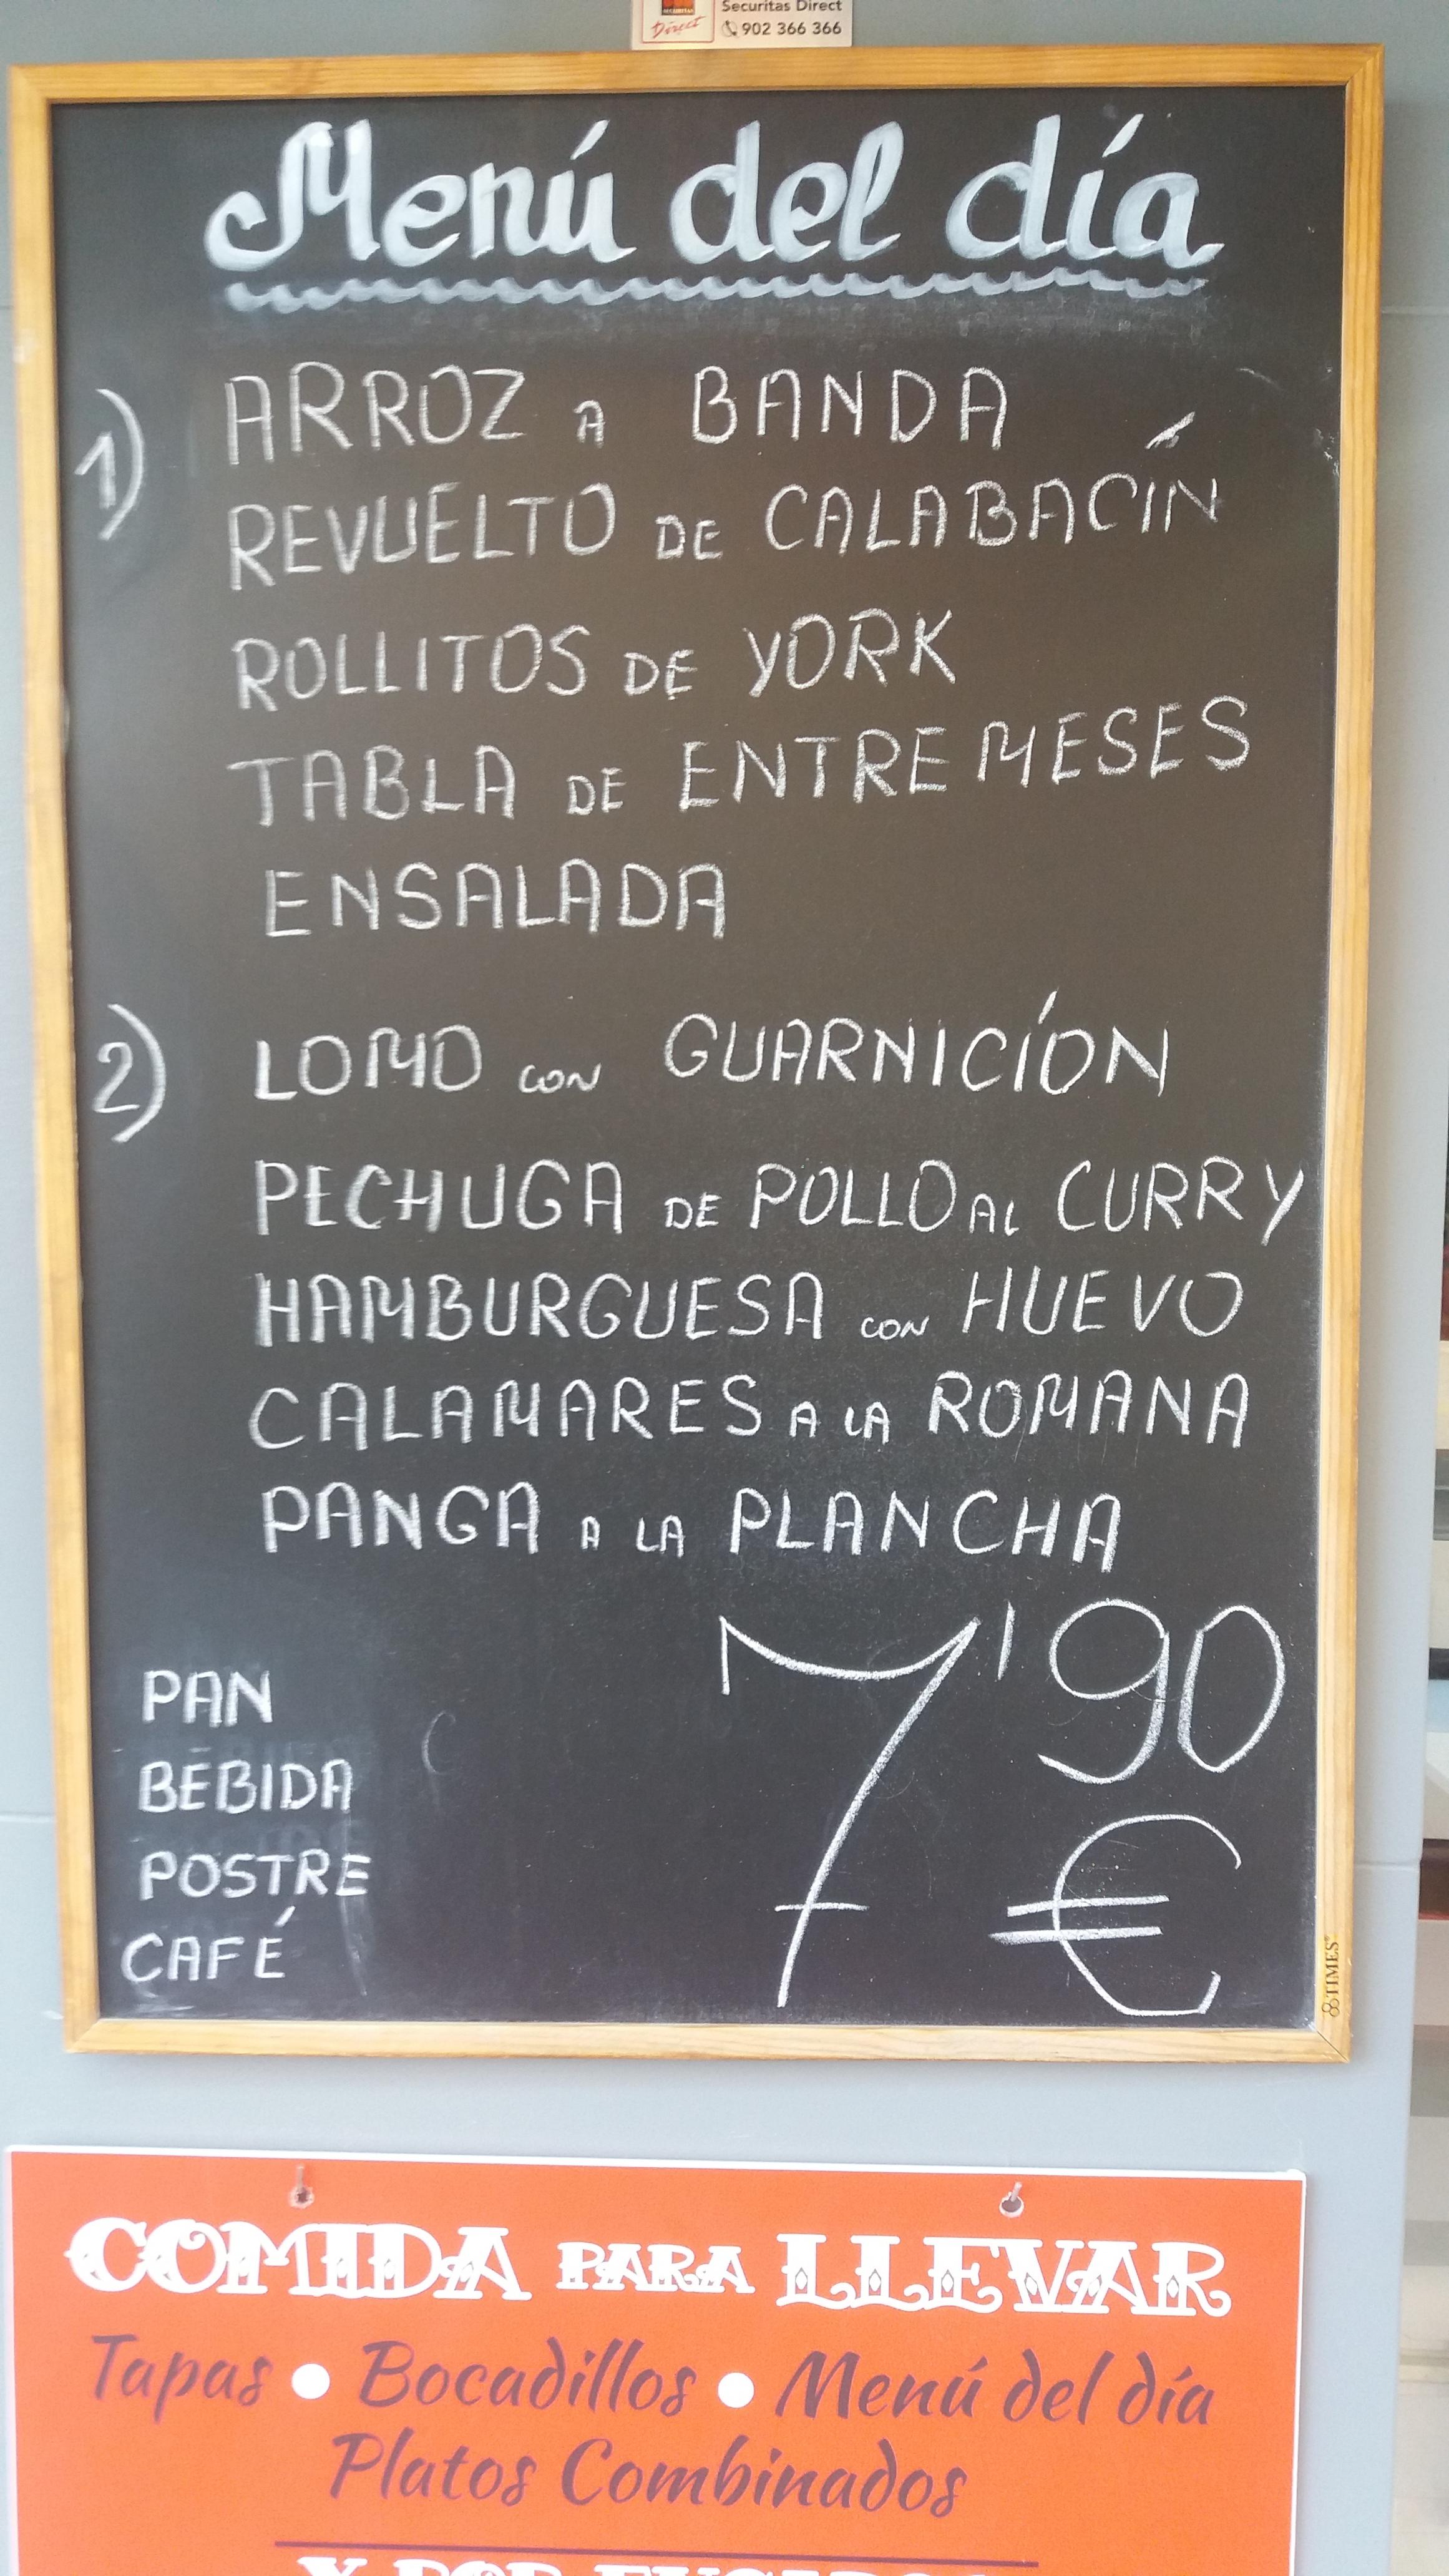 Securitas Direct
Direct
902 366 366
Menú del día
1) ARROZ A BANDA
REVUELTO DE CALABACÍN
ROLLITOS DE YORK
TABLA DE ENTREMESES
ENSALADA
2) LOMO CON GUARNICÍON
PECHUGA DE POLLO AL CURRY
HAMBURGUESA CON HUEVO
CALAMARES A LA ROMANA
PANGA A LA PLANCHA
7'90
€
PAN
BEBIDA
POSTRE
CAFÉ
TIMES
COMIDA PARA LLEVAR
Tapas • Bocadillos • Menú del día
Platos Combinados
Y POR